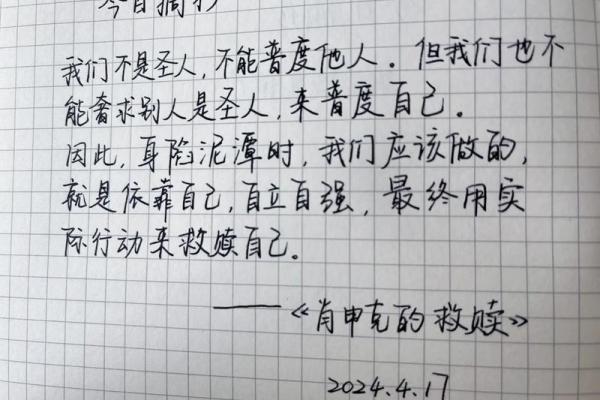 今日摘抄
我们不是圣人,不能普度他人.但我们也不
能奢求别人是圣人,来普度自己.
因此,身陷泥潭时,我们应该做的,
就是依靠自己,自立自强,最终用实
际行动来救赎自己。
——《肖申克的救赎》
2024.4.17